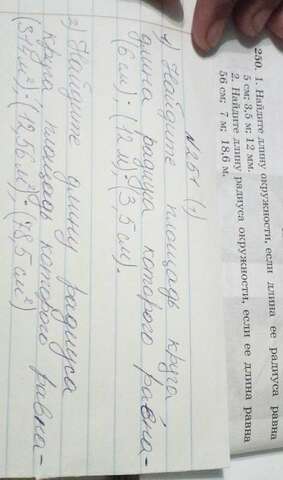 250. 1. Найдите длину окружности, если длина ее радиуса равна
5 см; 3,5 м; 12 мм.
2. Найдите длину радиуса окружности, если ее длина равна
56 см; 7 м; 18,6 м.
№251 (1)
1) Найдите площадь круга
длина радиуса которого равна-
(6 м); (12 м); (3,5 см).
3) Найдите длину радиуса
круга площадь которого равна-
(314 м²); (12,56 м²); (78,5 см²)